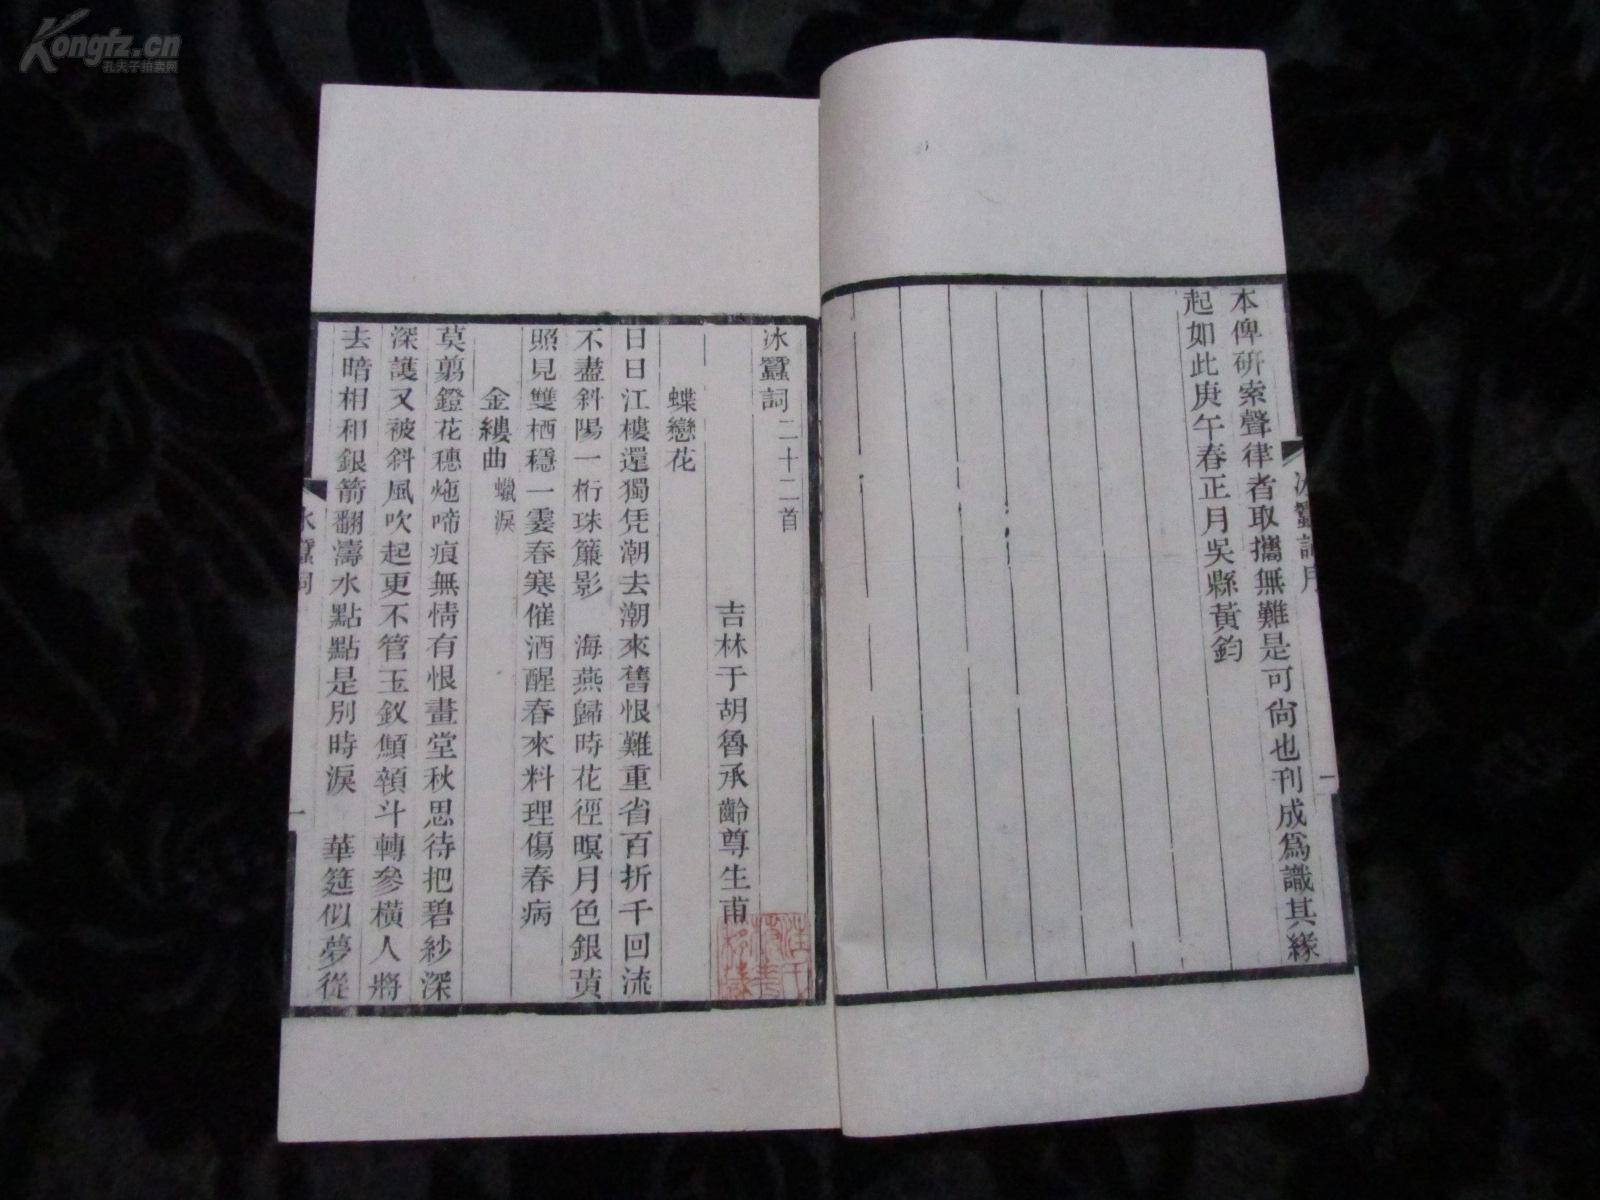 Kongfz.cn
孔夫子拍卖网
本俾研索聲律者取攜無難是可尙也刊成爲識其緣
起如此庚午春正月吳縣黃鈞
冰蠶詞序
一
冰蠶詞二十二首
吉林于胡魯承齡尊生甫
蝶戀花
日日江樓還獨凭潮去潮來舊恨難重省百折千回流
不盡斜陽一桁珠簾影　海燕歸時花徑暝月色銀黃
照見雙栖穩一霎春寒催酒醒春來料理傷春病
金縷曲蠟淚
莫翦鐙花穗灺啼痕無情有恨畫堂秋思待把碧紗深
深護又被斜風吹起更不管玉釵顦顇斗轉參橫人將
去暗相和銀箭翻濤水點點是別時淚　華筵似夢從
冰蠶詞
一